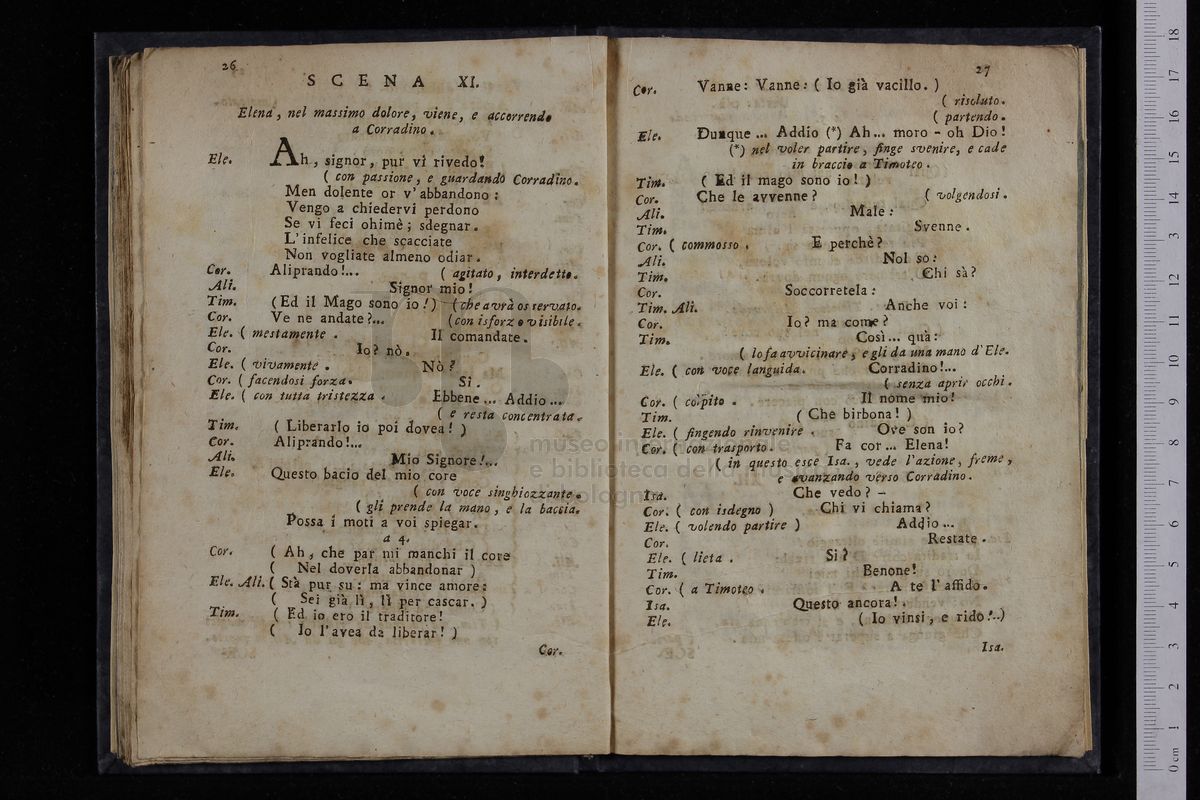 26
SCENA XI.
Elena, nel massimo dolore, viene, e accorrendo
a Corradino.
Ele. Ah, signor, pur vi rivedo!
( con passione, e guardando Corradino.
Men dolente or v'abbandono:
Vengo a chiedervi perdono
Se vi feci ohimè; sdegnar.
L'infelice che scacciate
Non vogliate almeno odiar.
Cor. Aliprando!... ( agitato, interdetto.
Ali. Signor mio!
Tim. (Ed il Mago sono io!) (che avrà osservato.
Cor. Ve ne andate?... (con isforzo visibile.
Ele. ( mestamente . Il comandate.
Cor. Io? nò.
Ele. ( vivamente . Nò?
Cor. ( facendosi forza. Sì.
Ele. ( con tutta tristezza . Ebbene... Addio...
( e resta concentrata.
Tim. ( Liberarlo io poi dovea! )
Cor. Aliprando!...
Ali. Mio Signore!...
Ele. Questo bacio del mio core
( con voce singhiozzante.
( gli prende la mano, e la baccia.
Possa i moti a voi spiegar.
a 4.
Cor. ( Ah, che par mi manchi il core
( Nel doverla abbandonar )
Ele. Ali. ( Stà pur su: ma vince amore:
( Sei già lì, lì per cascar. )
Tim. ( Ed io ero il traditore!
( Io l'avea da liberar! )
Cor.
27
Cor. Vanne: Vanne: ( Io già vacillo. )
( risoluto.
( partendo.
Ele. Dunque... Addio (*) Ah... moro - oh Dio!
(*) nel voler partire, finge svenire, e cade
in braccio a Timoteo.
Tim. ( Ed il mago sono io! )
Cor. Che le avvenne? ( volgendosi.
Ali. Male:
Tim. Svenne.
Cor. ( commosso . E perchè?
Ali. Nol so:
Tim. Chi sà?
Cor. Soccorretela:
Tim. Ali. Anche voi:
Cor. Io? ma come?
Tim. Così... quà:
( lo fa avvicinare, e gli da una mano d'Ele.
Ele. ( con voce languida. Corradino!...
( senza aprir occhi.
Cor. ( colpito . Il nome mio!
Tim. ( Che birbona! )
Ele. ( fingendo rinvenire . Ove son io?
Cor. ( con trasporto. Fa cor... Elena!
( in questo esce Isa., vede l'azione, freme,
e avanzando verso Corradino.
Isa. Che vedo? -
Cor. ( con isdegno ) Chi vi chiama?
Ele. ( volendo partire ) Addio...
Cor. Restate.
Ele. ( lieta . Sì?
Tim. Benone!
Cor. ( a Timoteo . A te l'affido.
Isa. Questo ancora!.
Ele. ( Io vinsi, e rido!..)
Isa.
museo internazionale
e biblioteca della musica
di bologna
0 cm 1 2 3 4 5 6 7 8 9 10 11 12 13 14 15 16 17 18